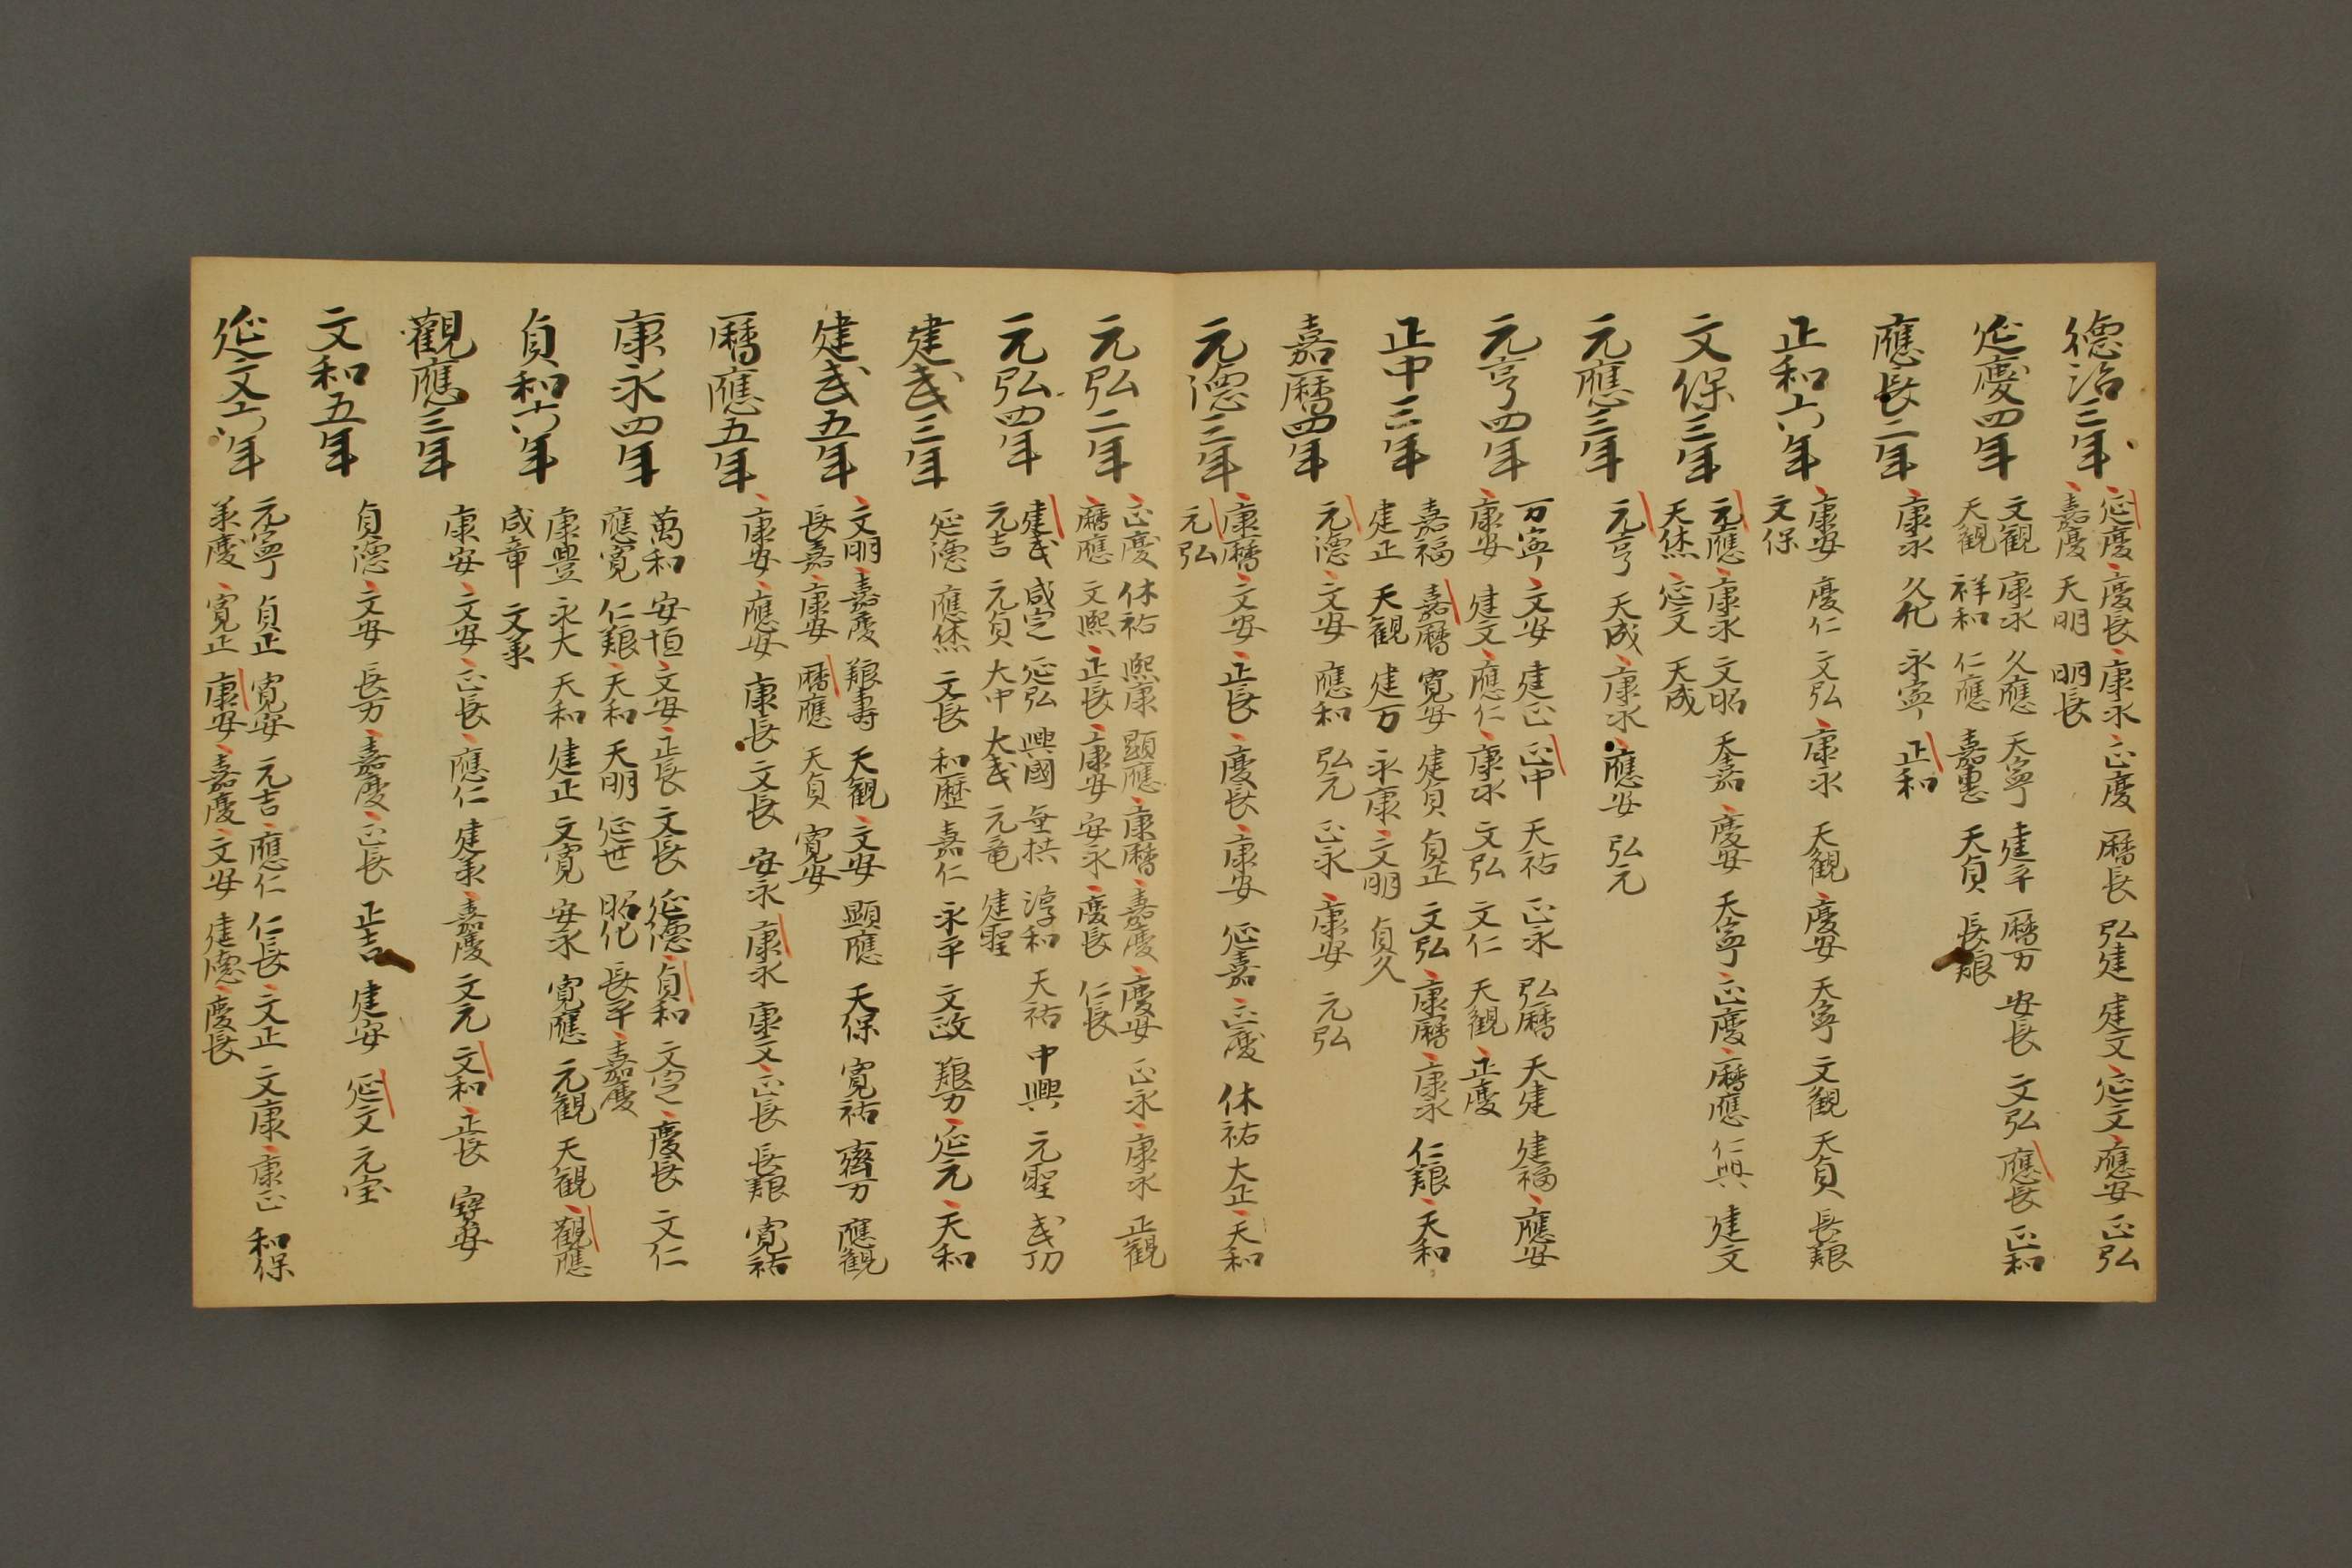 德治三年
延慶 慶長 康永 正慶 曆長 弘建 建文 延文 應安 正弘
嘉慶 天明 明長
延慶四年
文觀 康永 久應 天寧 建平 曆万 安長 文弘 應長 正和
天觀 祥和 仁應 嘉惠 天貞 長嘏
應長二年
康永 久化 永寧 正和
正和六年
康安 慶仁 文弘 康永 天觀 慶安 天寧 文觀 天貞 長嘏
文保
文保三年
元應 康永 文昭 天嘉 慶安 天寧 正慶 曆應 仁興 建文
天休 延文 天成
元應三年
元亨 天成 康永 應安 弘元
元亨四年
万寧 文安 建正 正中 天祐 正永 弘曆 天建 建福 應安
康安 建文 應仁 康永 文弘 文仁 天觀 正慶
正中三年
嘉福 嘉曆 寬安 建貞 貞正 文弘 康曆 康永 仁嘏 天和
建正 天觀 建万 永康 文明 貞久
嘉曆四年
元德 文安 應和 弘元 正永 康安 元弘
元德三年
康曆 文安 正長 慶長 康安 延嘉 正慶 休祐 大正 天和
元弘
元弘二年
正慶 休祐 熙康 顯應 康曆 嘉慶 慶安 正永 康永 正觀
曆應 文熙 正長 康安 安永 慶長 仁長
元弘四年
建武 咸定 延弘 興國 垂拱 淳和 天祐 中興 元聖 武功
元吉 元貞 大中 大武 元竜 建聖
建武三年
延德 應休 文長 和歷 嘉仁 永平 文政 嘏万 延元 天和
建武五年
文明 嘉慶 嘏壽 天觀 文安 顯應 天保 寬祐 齊万 應觀
長嘉 康安 曆應 天貞 寬安
曆應五年
康安 應安 康長 文長 安永 康永 康文 正長 長嘏 寬祐
康永四年
萬和 安恒 文安 正長 文長 延德 貞和 文定 慶長 文仁
應寬 仁嘏 天和 天明 延世 昭化 長平 嘉慶
貞和六年
康豊 永大 天和 建正 文寬 安永 寬應 元觀 天觀 觀應
咸章 文承
觀應三年
康安 文安 正長 應仁 建承 嘉慶 文元 文和 正長 寧安
文和五年
貞德 文安 長万 嘉慶 正長 正吉 建安 延文 元宝
延文六年
元寧 貞正 寬安 元吉 應仁 仁長 文正 文康 康正 和保
承慶 寬正 康安 嘉慶 文安 建德 慶長